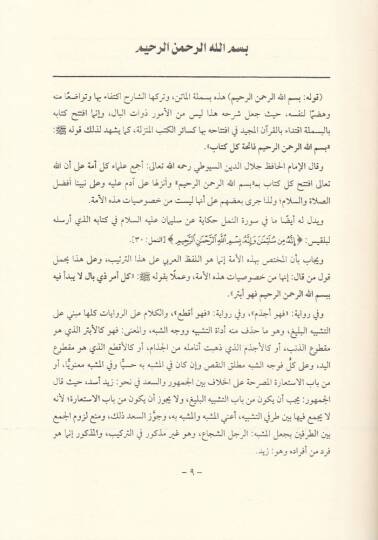 بسم الله الرحمن الرحيم
(قوله: بسم الله الرحمن الرحيم) هذه بسملة الماتن، وتركها الشارح اكتفاء بها وتواضعًا منه
وهضمًا لنفسه، حيث جعل شرحه هذا ليس من الأمور ذوات البال، وإنما افتتح كتابه
بالبسملة اقتداء بالقرآن المجيد في افتتاحه بها كسائر الكتب المنزلة، كما يشهد لذلك قوله ﷺ:
«بسم الله الرحمن الرحيم فاتحة كل كتاب».
وقال الإمام الحافظ جلال الدين السيوطي رحمه الله تعالى: أجمع علماء كل أمة على أن الله
تعالى افتتح كل كتاب بـ«بسم الله الرحمن الرحيم» وأنزلها على آدم عليه وعلى نبينا أفضل
الصلاة والسلام؛ ولذا جرى بعضهم على أنها ليست من خصوصيات هذه الأمة.
ويدل له أيضًا ما في سورة النمل حكاية عن سليمان عليه السلام في كتابه الذي أرسله
لبلقيس: ﴿إِنَّهُ مِن سُلَيْمَٰنَ وَإِنَّهُ بِسْمِ اللَّهِ الرَّحْمَٰنِ الرَّحِيمِ﴾ [النمل: ٣٠].
ويجاب بأن المختص بهذه الأمة إنما هو اللفظ العربي على هذا الترتيب، وعلى هذا يحمل
قول من قال: إنها من خصوصيات هذه الأمة، وعملًا بقوله ﷺ: «كل أمر ذي بال لا يبدأ فيه
ببسم الله الرحمن الرحيم فهو أبتر».
وفي رواية: «فهو أجذم»، وفي رواية: «فهو أقطع»، والكلام على الروايات كلها مبني على
التشبيه البليغ، وهو ما حذف منه أداة التشبيه ووجه الشبه، والمعنى: فهو كالأبتر الذي هو
مقطوع الذنب، أو كالأجذم الذي ذهبت أنامله من الجذام، أو كالأقطع الذي هو مقطوع
اليد، وعلى كلٍّ فوجه الشبه مطلق النقص وإن كان في المشبه به حسيًّا وفي المشبه معنويًّا، أو
من باب الاستعارة المصرحة على الخلاف بين الجمهور والسعد في نحو: زيد أسد، حيث قال
الجمهور: يجب أن يكون من باب التشبيه البليغ، ولا يجوز أن يكون من باب الاستعارة؛ لأنه
لا يجمع فيها بين طرفي التشبيه، أعني المشبه والمشبه به، وجوَّز السعد ذلك، ومنع لزوم الجمع
بين الطرفين بجعل المشبه: الرجل الشجاع، وهو غير مذكور في التركيب، والمذكور إنما هو
فرد من أفراده وهو: زيد.
- ٩ -